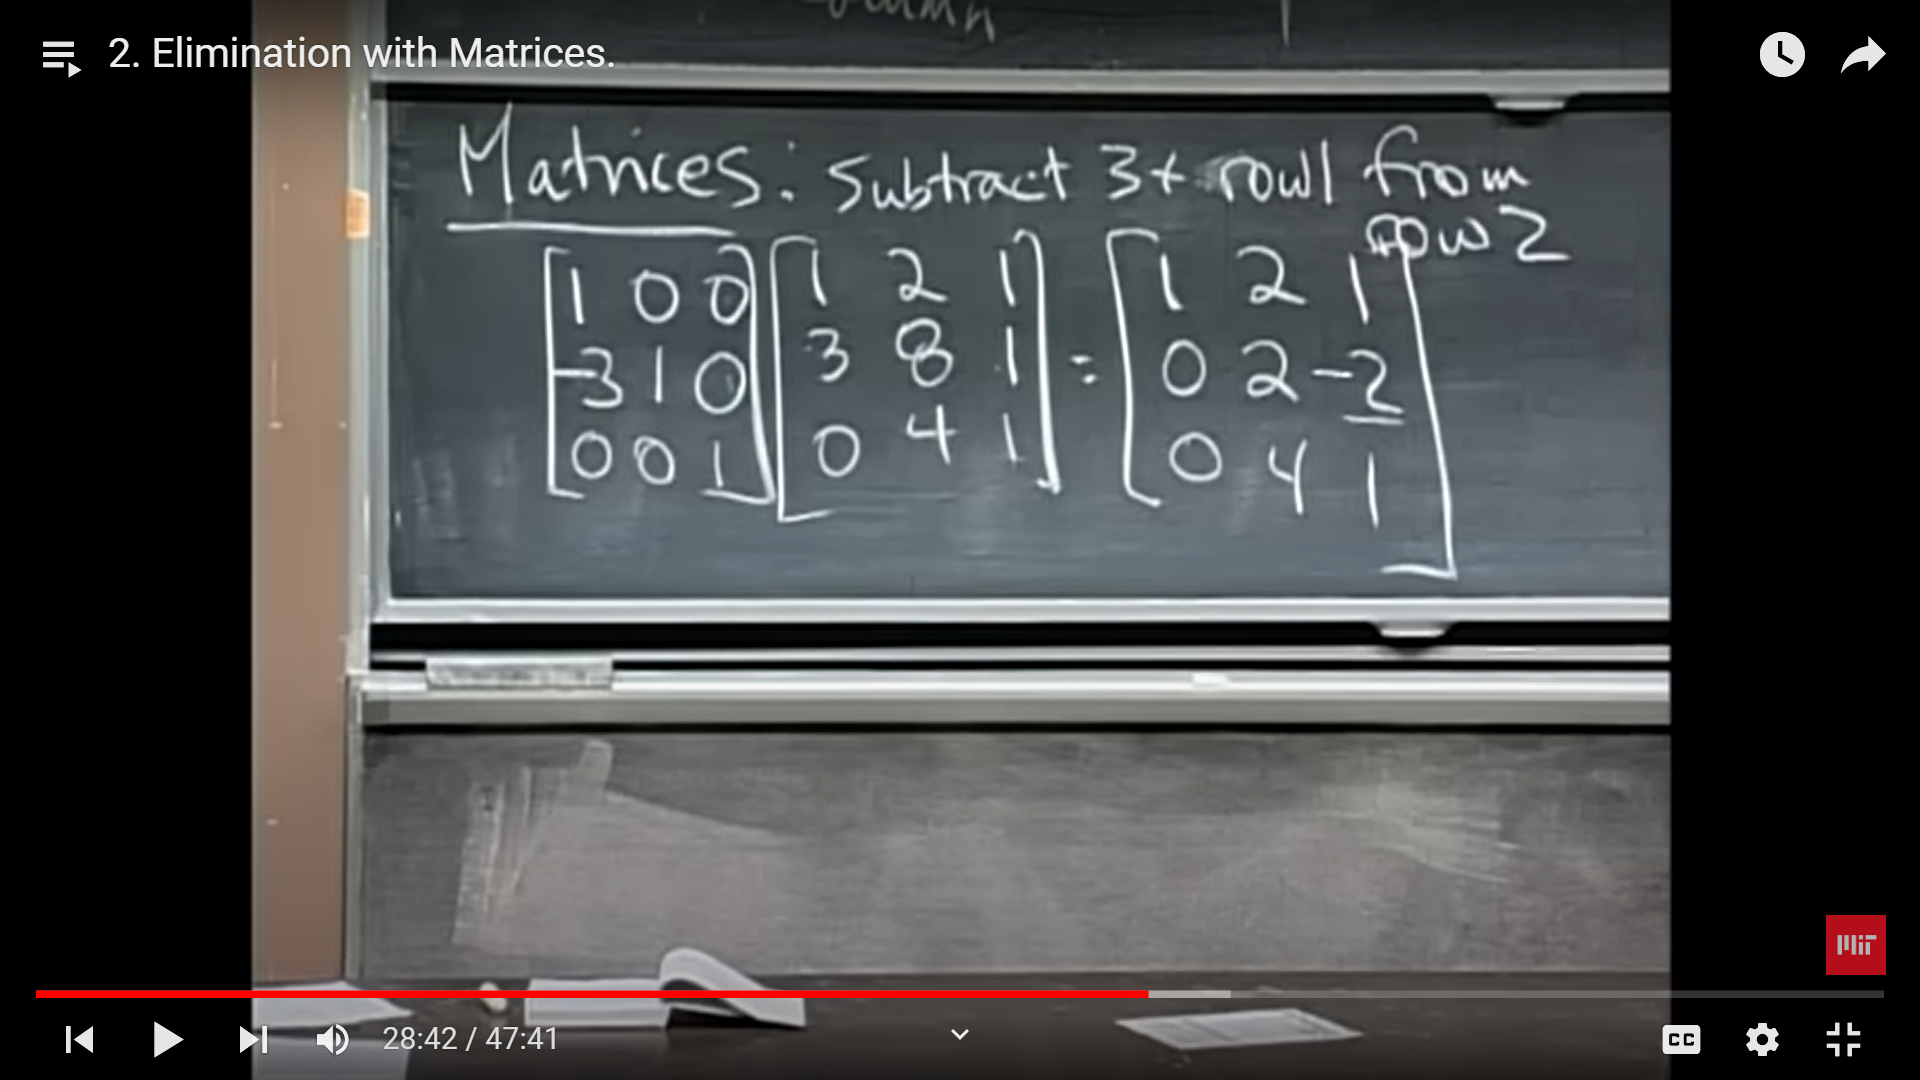 2. Elimination with Matrices.
Matrices: Subtract 3x row1 from
row2
[1 0 0] [1 2 1] = [1 2 1]
[-3 1 0] [3 8 1] [0 2 -2]
[0 0 1] [0 4 1] [0 4 1]
MIT
28:42 / 47:41
CC